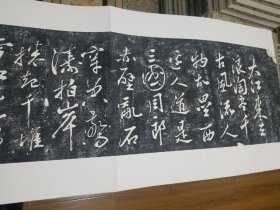 大江東去
浪淘盡千
古風流人
物故壘西
邊人道是
三國周郎
赤壁亂石
穿空驚
濤拍岸
捲起千堆